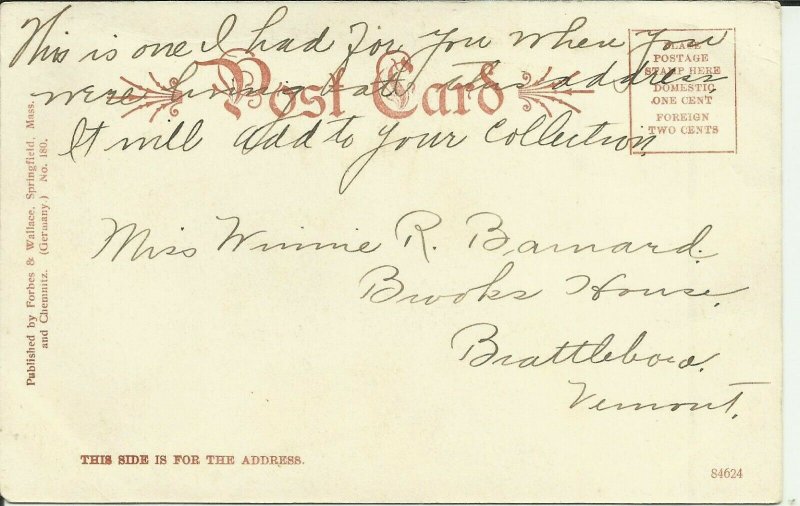 This is one I had for you when you
were living at this address,
It will add to your collection
Post Card
PLACE
POSTAGE
STAMP HERE
DOMESTIC
ONE CENT
FOREIGN
TWO CENTS
Miss Winnie R. Barnard.
Brooks House,
Brattleboro.
Vermont.
Published by Forbes & Wallace, Springfield, Mass.
and Chemnitz. (Germany.) No. 180.
THIS SIDE IS FOR THE ADDRESS.
84624